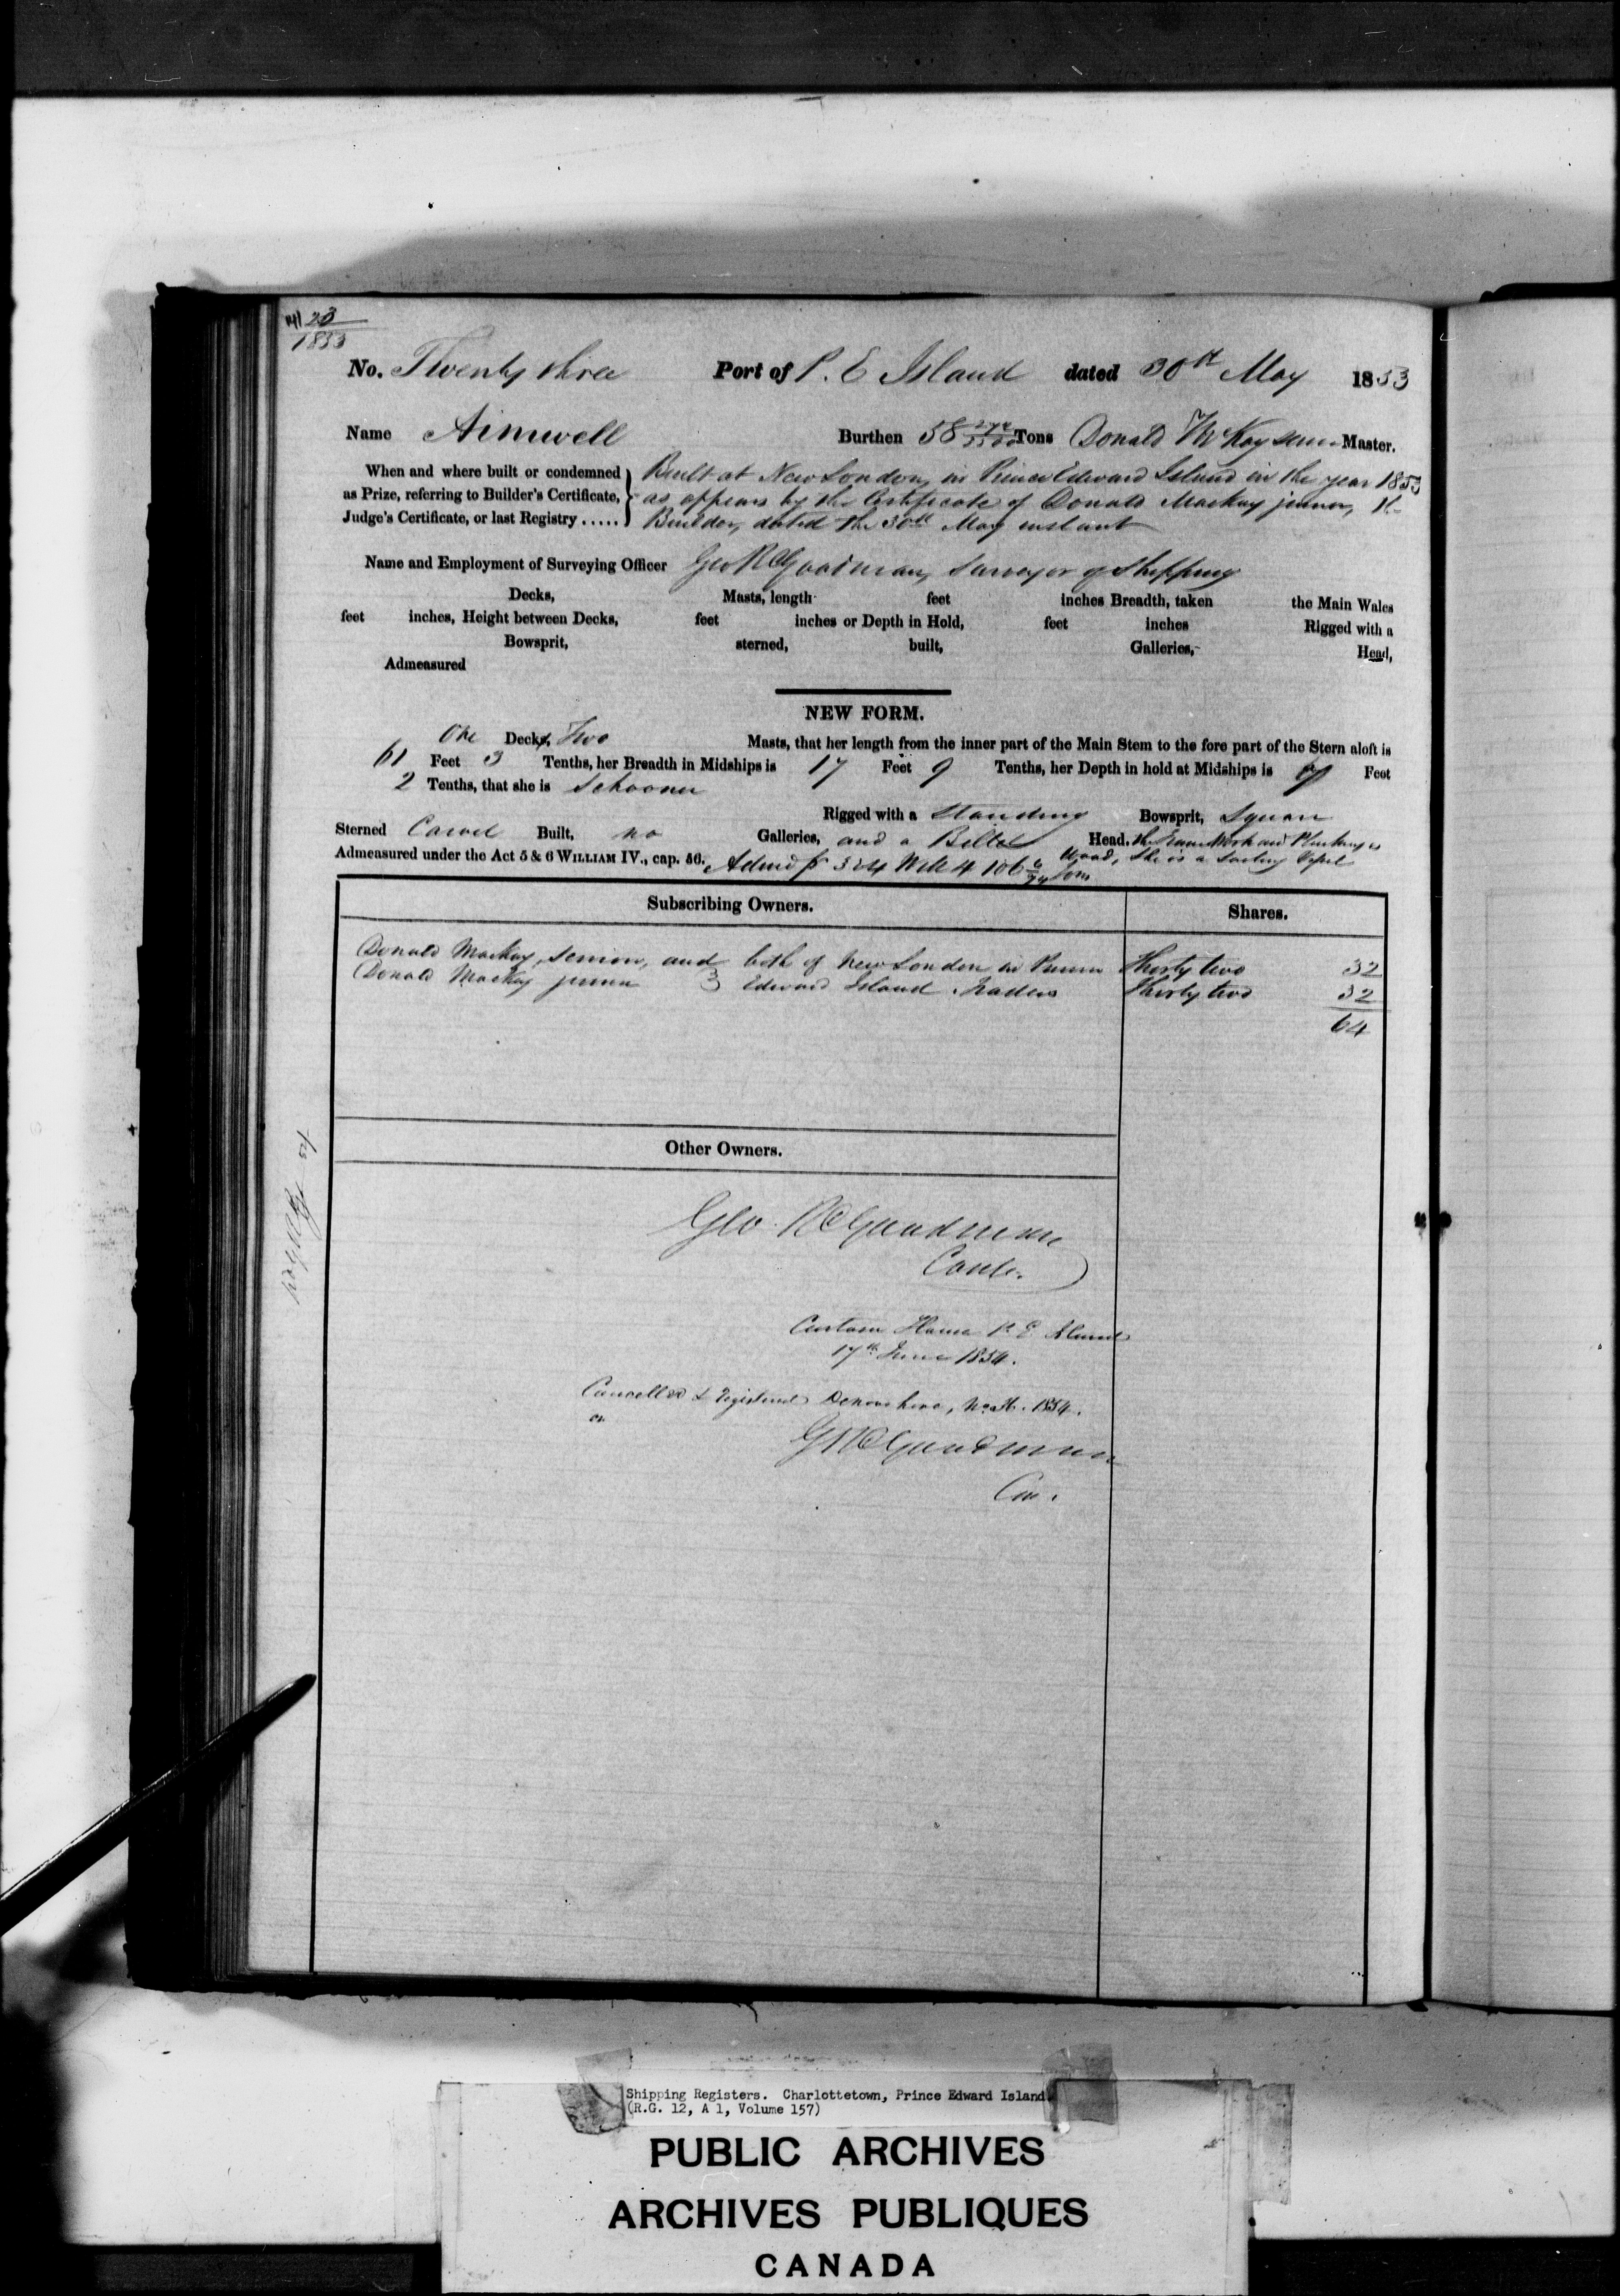 23
1853
No. Twenty three Port of P. E Island dated 30th May 1853
Name Aimwell Burthen 58 Tons Donald McKay Master.
When and where built or condemned Built at New London, in Prince Edward Island in the year 1853
as Prize, referring to Builder's Certificate, as appears by the Certificate of Donald Mackay junior, the
Judge's Certificate, or last Registry ..... Builder, dated the 30th May instant
Name and Employment of Surveying Officer Geo R Goodman, Surveyor of Shipping
Decks, Masts, length feet inches Breadth, taken the Main Wales
feet inches, Height between Decks, feet inches or Depth in Hold, feet inches Rigged with a
Bowsprit, sterned, built, Galleries, Head,
Admeasured
NEW FORM.
One Decks, Two Masts, that her length from the inner part of the Main Stem to the fore part of the Stern aloft is
61 Feet 3 Tenths, her Breadth in Midships is 17 Feet 9 Tenths, her Depth in hold at Midships is 7 Feet
2 Tenths, that she is Schooner
Rigged with a Standing Bowsprit, Square
Sterned Carvel Built, no Galleries, and a Billet Head, the Frame Work and Planking is
Admeasured under the Act 5 & 6 WILLIAM IV., cap. 56. Wood, She is a Sailing Vessel
Tons
Subscribing Owners. Shares.
Donald Mackay, senior, and both of New London in Prince Thirty two 32
Donald Mackay junior Edward Island, Traders Thirty two 32
64
Other Owners.
Geo. R Goodman
Contr.
Custom House P. E Island
17th June 1854.
Cancelled & registered Devonshire, 1854.
G R Goodman
Shipping Registers. Charlottetown, Prince Edward Island
(R.G. 12, A 1, Volume 157)
PUBLIC ARCHIVES
ARCHIVES PUBLIQUES
CANADA